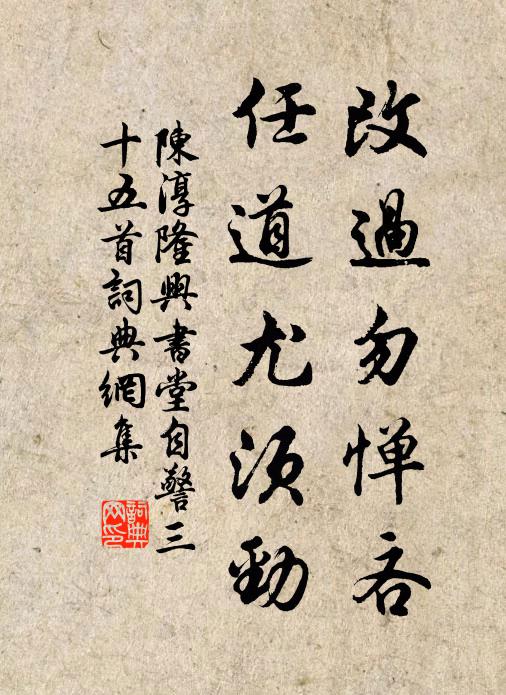 改過勿憚吝
任道尤須勁
陳淳隆興書堂自警三
十五首詞典網集
詞典
网印